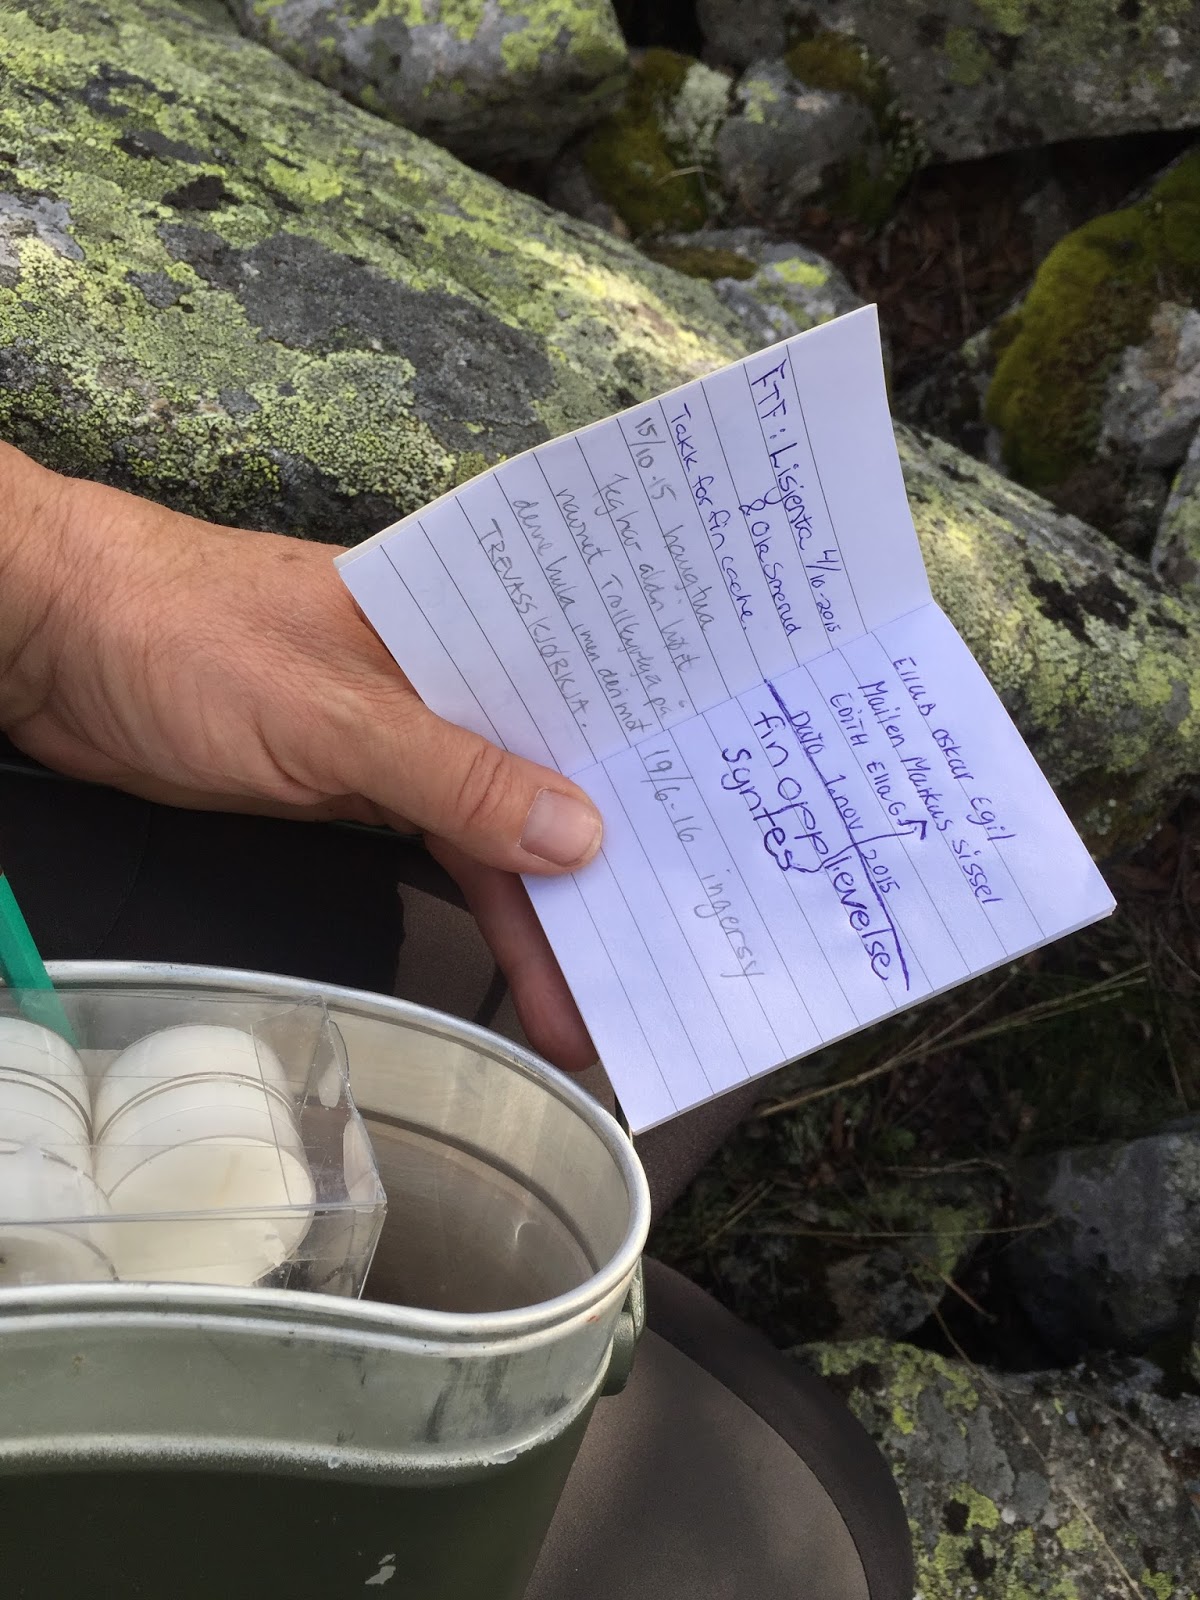 FTF: Lisjenta 4/10-2015
& Ola Smerud
Takk for fin cache.
15/10-15 haugtua
Jeg har aldri hørt
navnet Trollkyrkja på
denne hula, men derimot
TREVASSKJØRKJA.
Ella.B oskar Egil
Mailen Markus sissel
EDITH Ella G
Data 1.nov/2015
fin opplevelse
syntes
19/6-16 ingersy